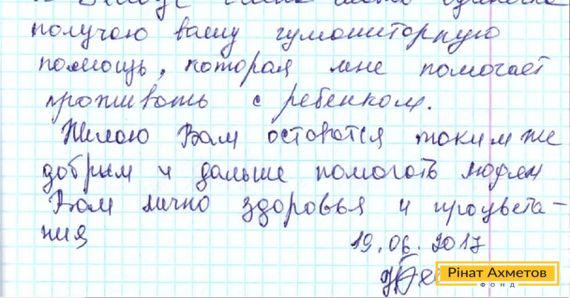 получаю вашу гумониторную
помощь, которая мне помогает
проживать с ребенком.
Желаю Вам остоватся таким же
добрым и дальше помогать людям
Вам лично здоровья и процвета-
ния
19.06.2017
Рінат Ахметов
ФОНД